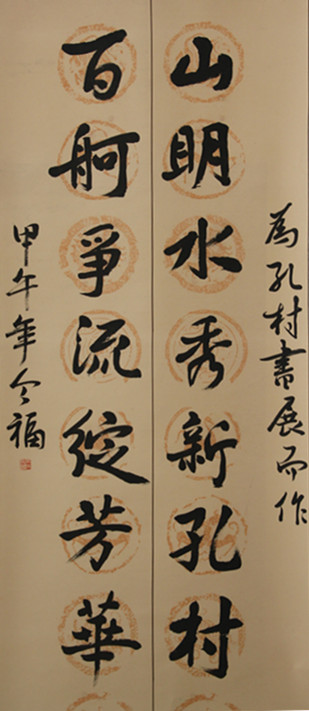 為孔村書展而作
山明水秀新孔村
百舸爭流綻芳華
甲午年令福